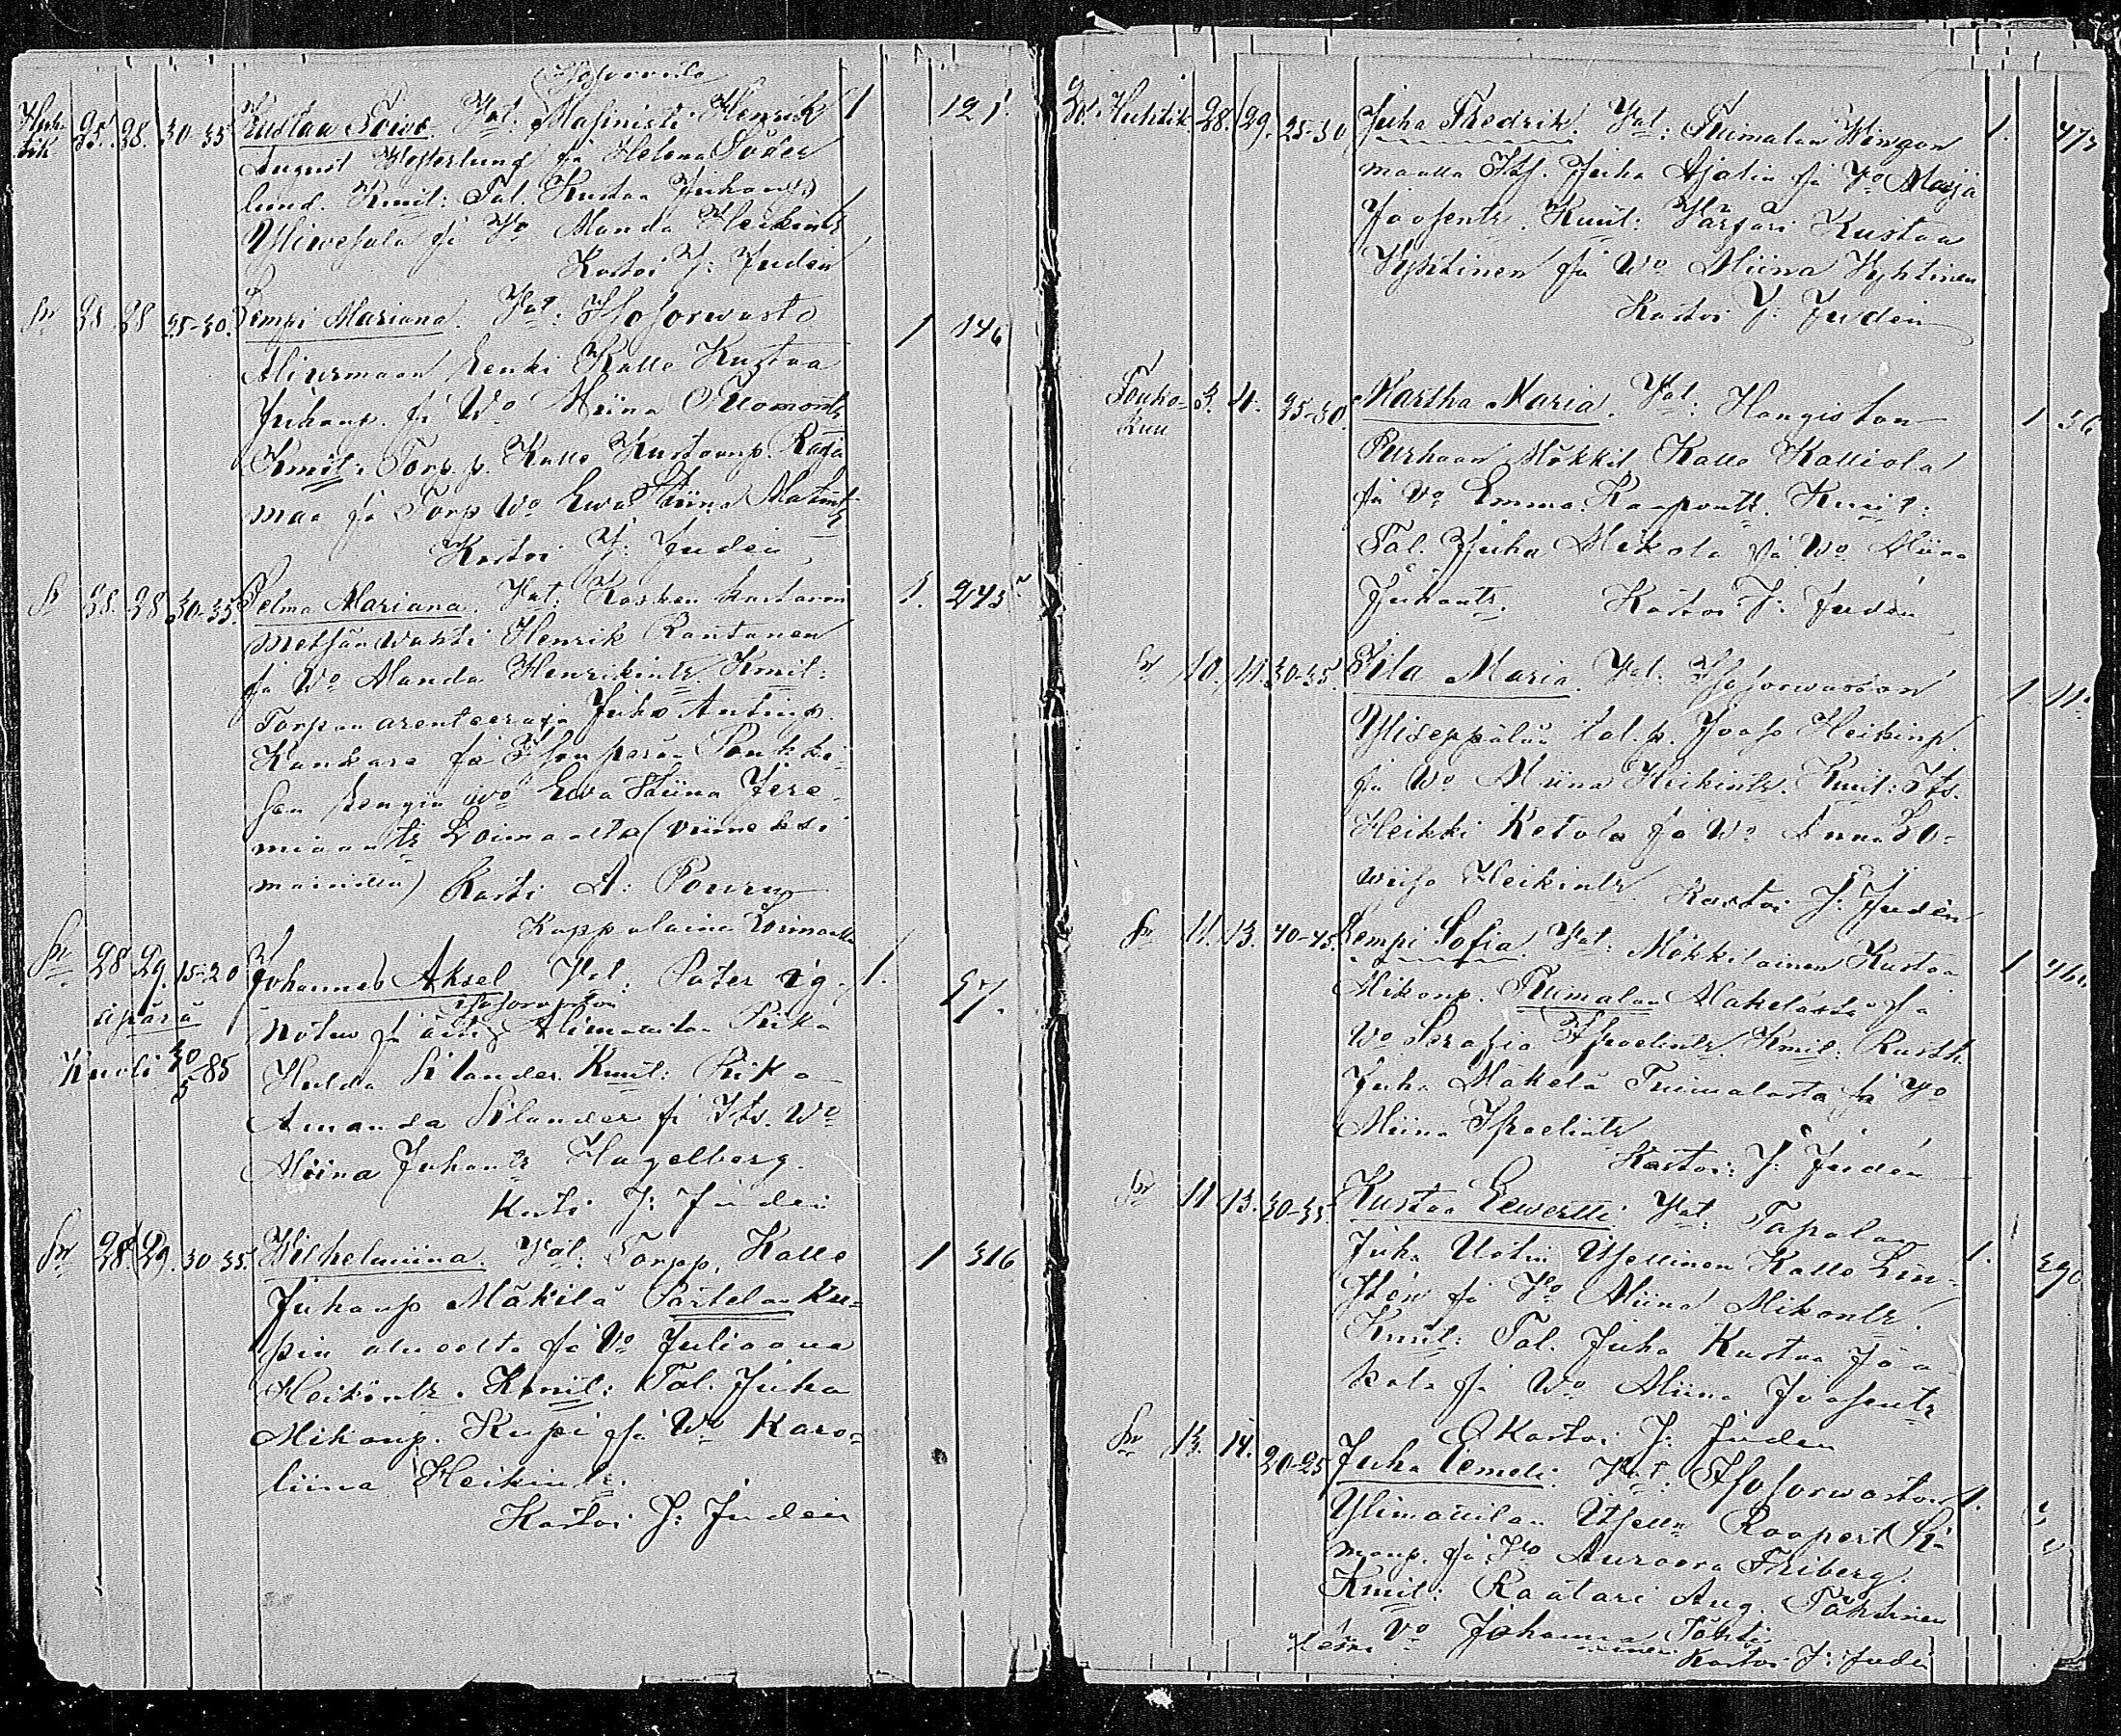 Isosorwasto
Huhtik. 25. 28. 30-35 Kustaw Towe. Vat: Masinisti Henrik 1 121.
August Westerlund ja Helena Söder
lund. Kmit: Tal. Kustaa Juhanp
Yliwesala ja Vo Manda Heikintr
Kastoi J: Juden
S 28 28 25-30. Lempi Mariana. Vat: Isosorwasto 1 146
Alinirmaan Renki Kalle Kustaa
Juhanp. ja Wo Miina Tuomontr
Kmit: Torp. p. Kalle Kustaanp. Raja
maa ja Torp Wo Ewa Stiina Matintr
Kastoi J: Juden
S 28. 28 30-35. Selma Mariana. Vat: Kosken kartanon 1. 243
metsän wahti Henrik Rantanen
ja Wo Manda Henrikintr Kmit:
Torpan arenteeraja Juho Antinp.
Kankare ja Isonperän Pankki-
san rengin wo Ewa Stiina Jere-
miaantr Loimaalta (viimeksi
mainittu) Kasti A: Pouru
Kappalainen Loimaalla
S 28 29. 15-20 Johannes Aksel Vat: Pater ig- 1. 57.
äpärä notus ja äiti Isosorvaston Alimaunulan Piika
Kuoli 30/5 85 Hulda Silander. Kmit: Piika
Amanda Silander ja Its. Wo
Miina Juhontr Hagelberg.
Kasti J: Juden
S 28 (29. 30-35. Wilhelmiina. Vat: Torpp. Kalle 1 316
Juhanp Mäkilä Pärtelan Ku-
pin alueelta ja Vo Juliaana
Heikintr. Kmit: Tal. Juha
Mikonp. Kupi ja Wo Karo-
liina Heikintr.
Kastoi J: Juden
20. Huhtik. 28. (29. 25-30 Juha Fredrik. Vat: Tuimalan Wingon 1. 473
maalla Its. Juha Ajatin ja Vo Maja
Joosentr. Kmit: Värjäri Kustaa
Vyhtinen ja Wo Miina Vyhtinen
Kastoi J: Juden
Touko- 3. 4. 25-30. Martha Maria. Vat: Hongiston 1 56
kuu Purhaan Mökkil. Kalle Kalliola
ja Vo Emma Kaapontr. Kmit:
Tal. Juha Mikola ja Wo Miina
Juhontr. Kastoi J: Juden
S 10. 11. 30-35. Fila Maria. Vat. Isosorwaston 1 11.
Yliseppälän tal.p. Jooso Heikinp.
ja Wo Miina Heikintr. Kmit: Its.
Heikki Ketola ja Wo Anna Lo-
wiisa Heikintr. Kastoi J: Juden
S 11. 13. 40-45. Lempi Sofia. Vat: Mökkiläinen Kustaa 1 466
Mikonp. Tuimalan Mäkelästä ja
Wo Serafia Israelintr. Kmit: Rusth.
Juha Mäkelä Tuimalasta ja Vo
Miina Israelintr
Kastoi: J: Juden
S 11 13. 30-35. Kustaa Eewertti Vat: Tapalan
Juha Uotin Itsellinen Kalle Lin- 1. 390
stén ja Vo Miina Mikontr.
Kmit: Tal. Juha Kustaa Jaa
kola ja Wo Miina Joosentr
Kastoi J: Juden
S 13. 14. 20-25 Juha Eemeli. Vat: Isosorwaston 1.
Ylimaunulan Itsellin Roopert Si-
monp. ja Vo Auroora Friberg.
Kmit: Räätäri Aug. Tähtinen
ja Vo Johanna Tähti-
nen. Kastoi J: Juden